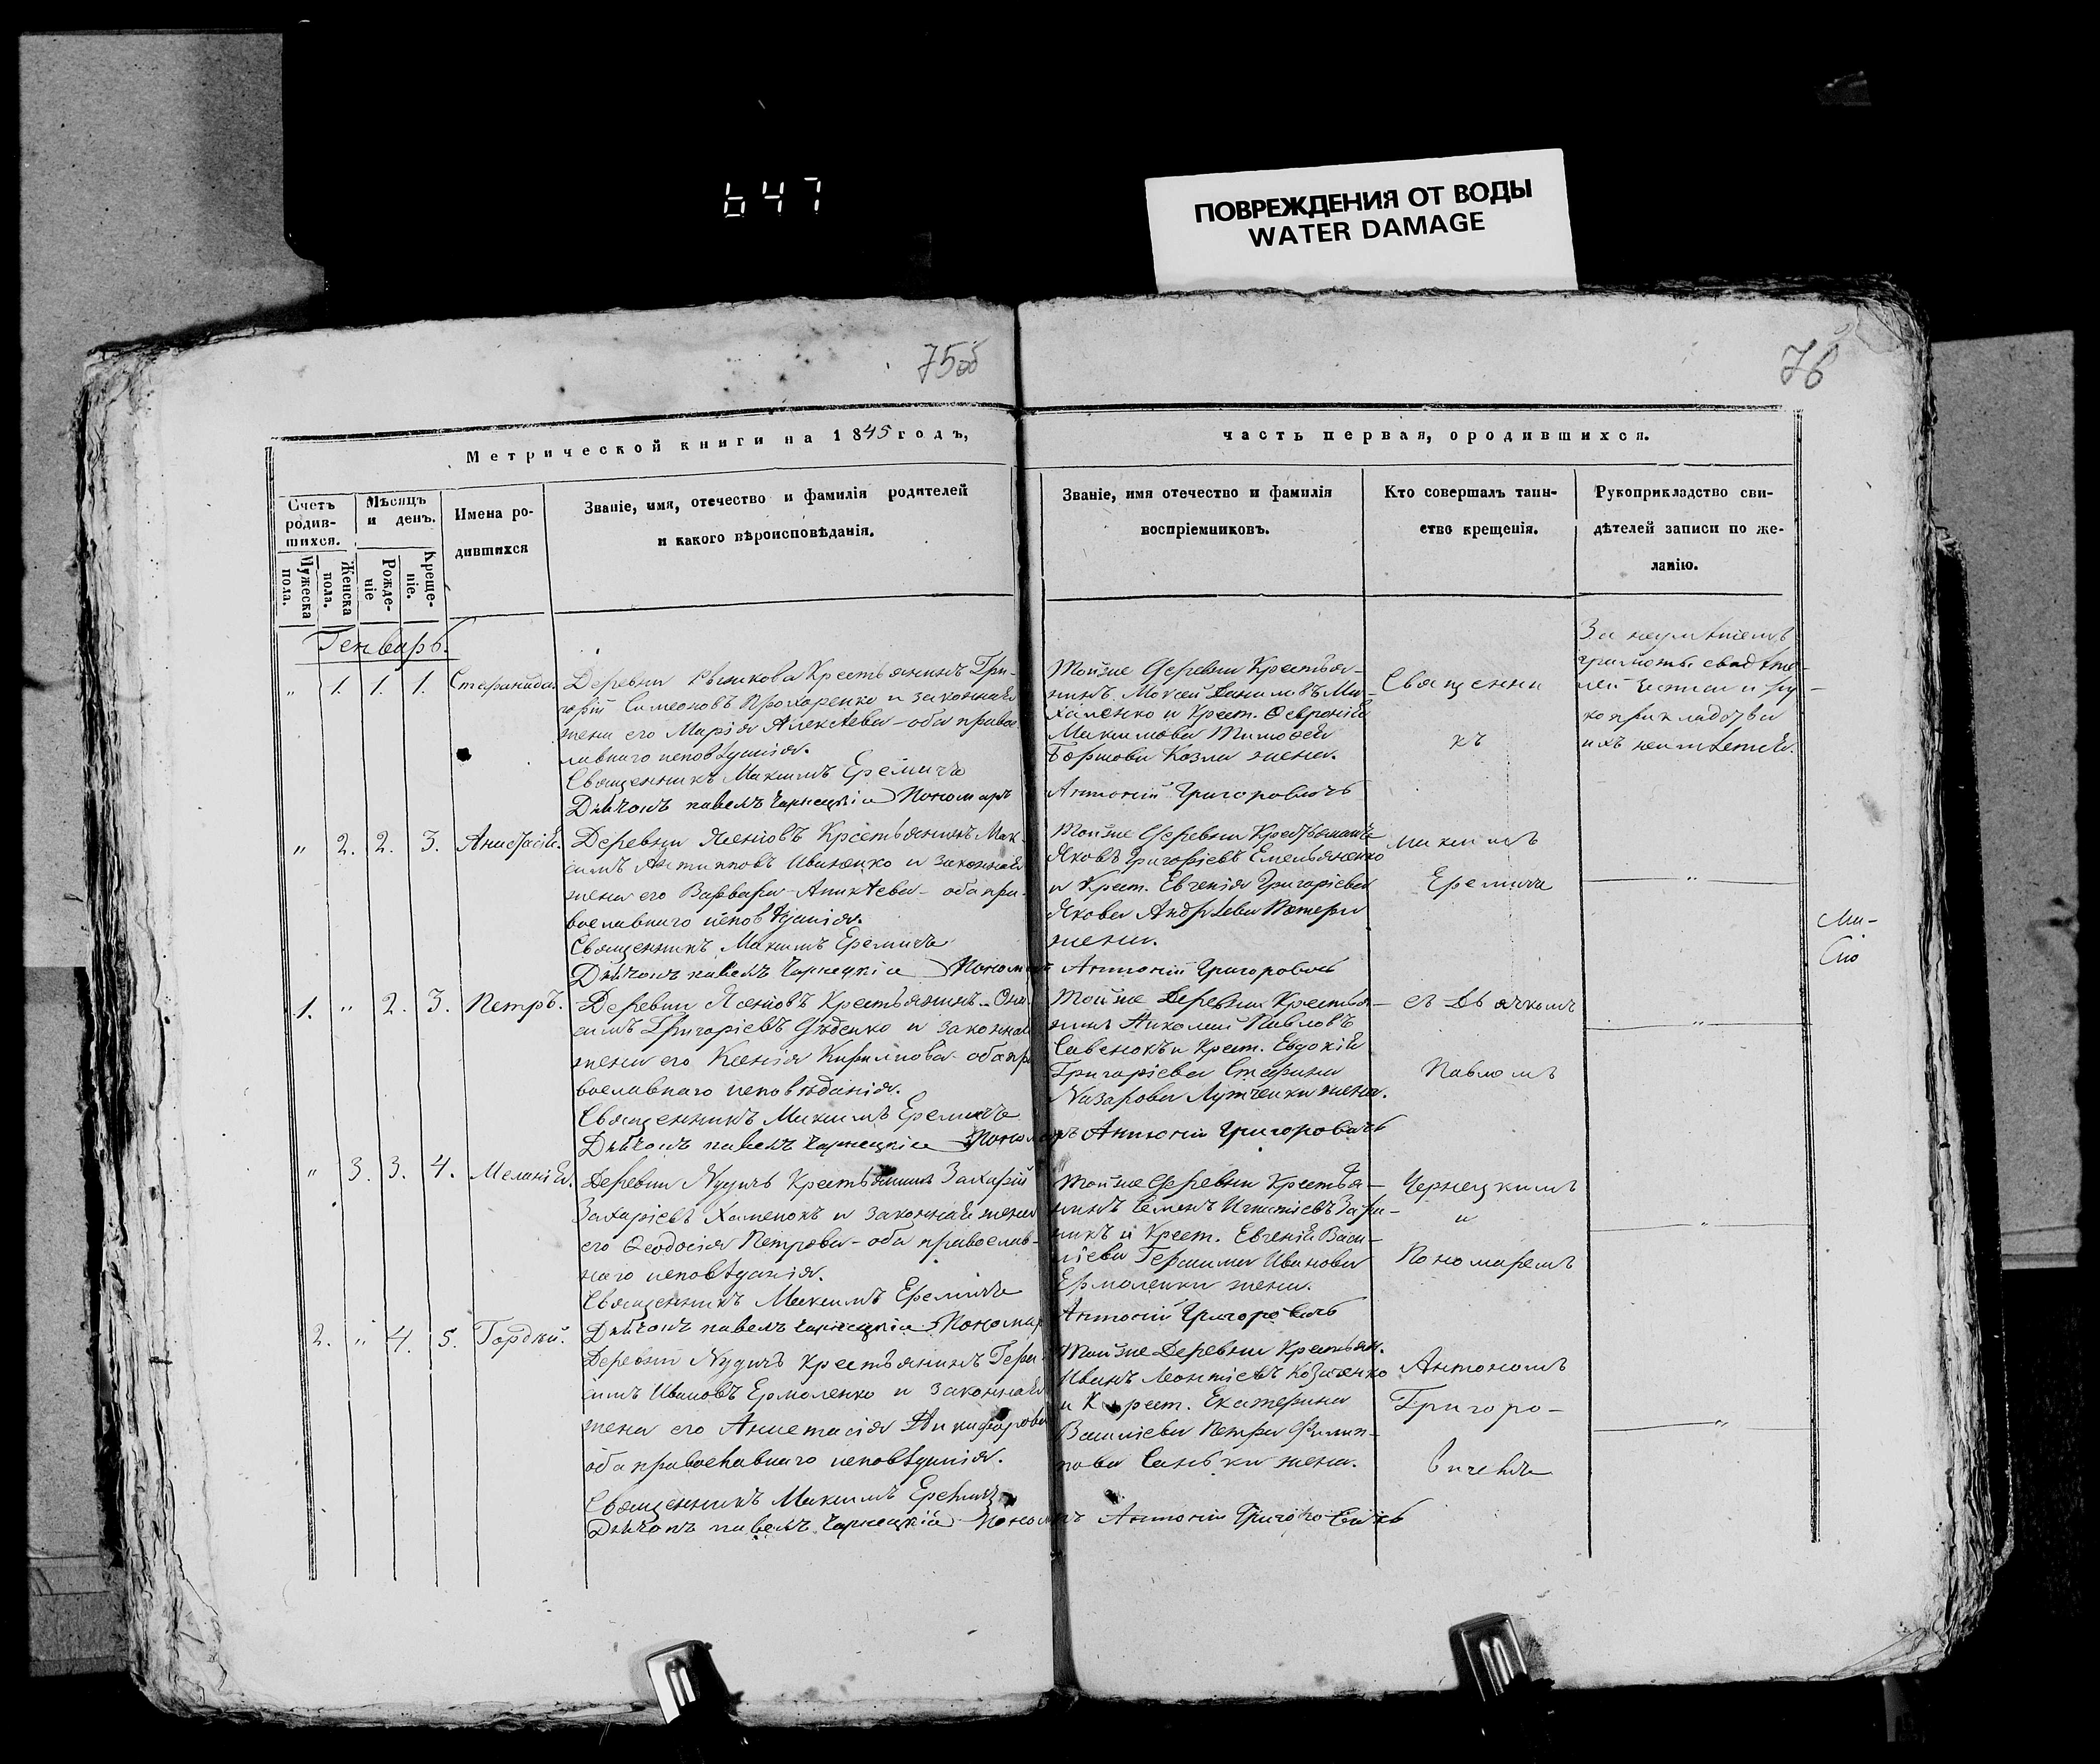 647
ПОВРЕЖДЕНИЯ ОТ ВОДЫ
WATER DAMAGE
75об
76
Метрической книги на 1845 годъ,
часть первая, ородившихся.
Счетъ родив-шихся.
Мужеска пола.
Женска пола.
Мѣсяцъ и день.
Рожде-ніе
Креще-ніе.
Имена ро-дившихся
Званіе, имя, отечество и фамилія родителей
и какого вѣроисповѣданія.
Званіе, имя отечество и фамилія
воспріемниковъ.
Кто совершалъ таин-
ство крещенія.
Рукоприкладство сви-
дѣтелей записи по же-
ланію.
Генварь.
" 1. 1. 1. Стефанида.
Деревни Крестьянинъ Гри-
горій Симеоновъ Прохоренко и законная
жена его Марія Алексѣева - оба право
славнаго исповѣданія.
Священникъ Максимъ Еремичъ
Дьячокъ павелъ Чарнецкій Пономарь
Тойже Деревни Крестья-
нинъ Моисей Даниловъ Ми-
халенко и Крест. Ѳевронія
Максимова Тимоѳея
Козла жена.
Антоній Григоровичъ
Священни
къ
За неумѣніемъ
грамоты свидѣте-
лей записи и ру-
коприкладства
ихъ неимѣется.
" 2. 2. 3. Анастасія.
Деревни Ясеновъ Крестьянинъ Мак-
симъ Антиповъ Иваненко и законная
жена его Варвара Аникѣева - оба пра-
вославнаго исповѣданія.
Священникъ Максимъ Еремичъ
Дьячокъ павелъ Чарнецкій Пономарь
Тойже Деревни Крестьянинъ
Яковъ Григоріевъ Емельяненко
и Крест. Евгенія Григоріева
Якова Андрѣева
жена.
Антоній Григоровичъ
Максимъ
Еремичъ
"
Ми-
Сію
1. " 2. 3. Петръ.
Деревни Ясеновъ Крестьянинъ Они
симъ Григоріевъ Дѣденко и законная
жена его Ксенія Кирилова оба пра
вославнаго исповѣданія.
Священникъ Максимъ Еремичъ
Дьячокъ павелъ Чарнецкій Пономарь
Тойже Деревни Крестья-
нинъ Николай Павловъ
Савенокъ и Крест. Евдокія
Григоріева Стефана
Назарова жена.
Антоній Григоровичъ
съ Дьячкомъ
Павломъ
"
" 3. 3. 4. Меланія.
Деревни Нудичъ Крестьянинъ Захарій
Захаріевъ Хаменокъ и законная жена
его Ѳеодосія Петрова - оба православ-
наго исповѣданія.
Священникъ Максимъ Еремичъ
Дьячокъ павелъ Чарнецкій Пономарь
Тойже Деревни Крестья-
нинъ Семенъ Игнатіевъ
и Крест. Евгенія Васи-
ліева Герасима Иванова
Ермоленки жена.
Антоній Григоровичъ
Чернецкимъ
и
Пономаремъ
"
2. " 4. 5. Гордій.
Деревни Нудичъ крестьянинъ Гера
симъ Ивановъ Ермоленко и законная
жена его Анастасія Никифорова
оба православнаго исповѣданія.
Священникъ Максимъ Еремичъ
Дьячокъ павелъ Чарнецкій Пономарь
Тойже Деревни Крестьян.
Иванъ Леонтіевъ Козленко
и Крест. Екатерина
Василіева Петра Филип-
пова Саньки жена.
Антоній Григоровичъ
Антоніемъ
Григоро-
вичемъ
"